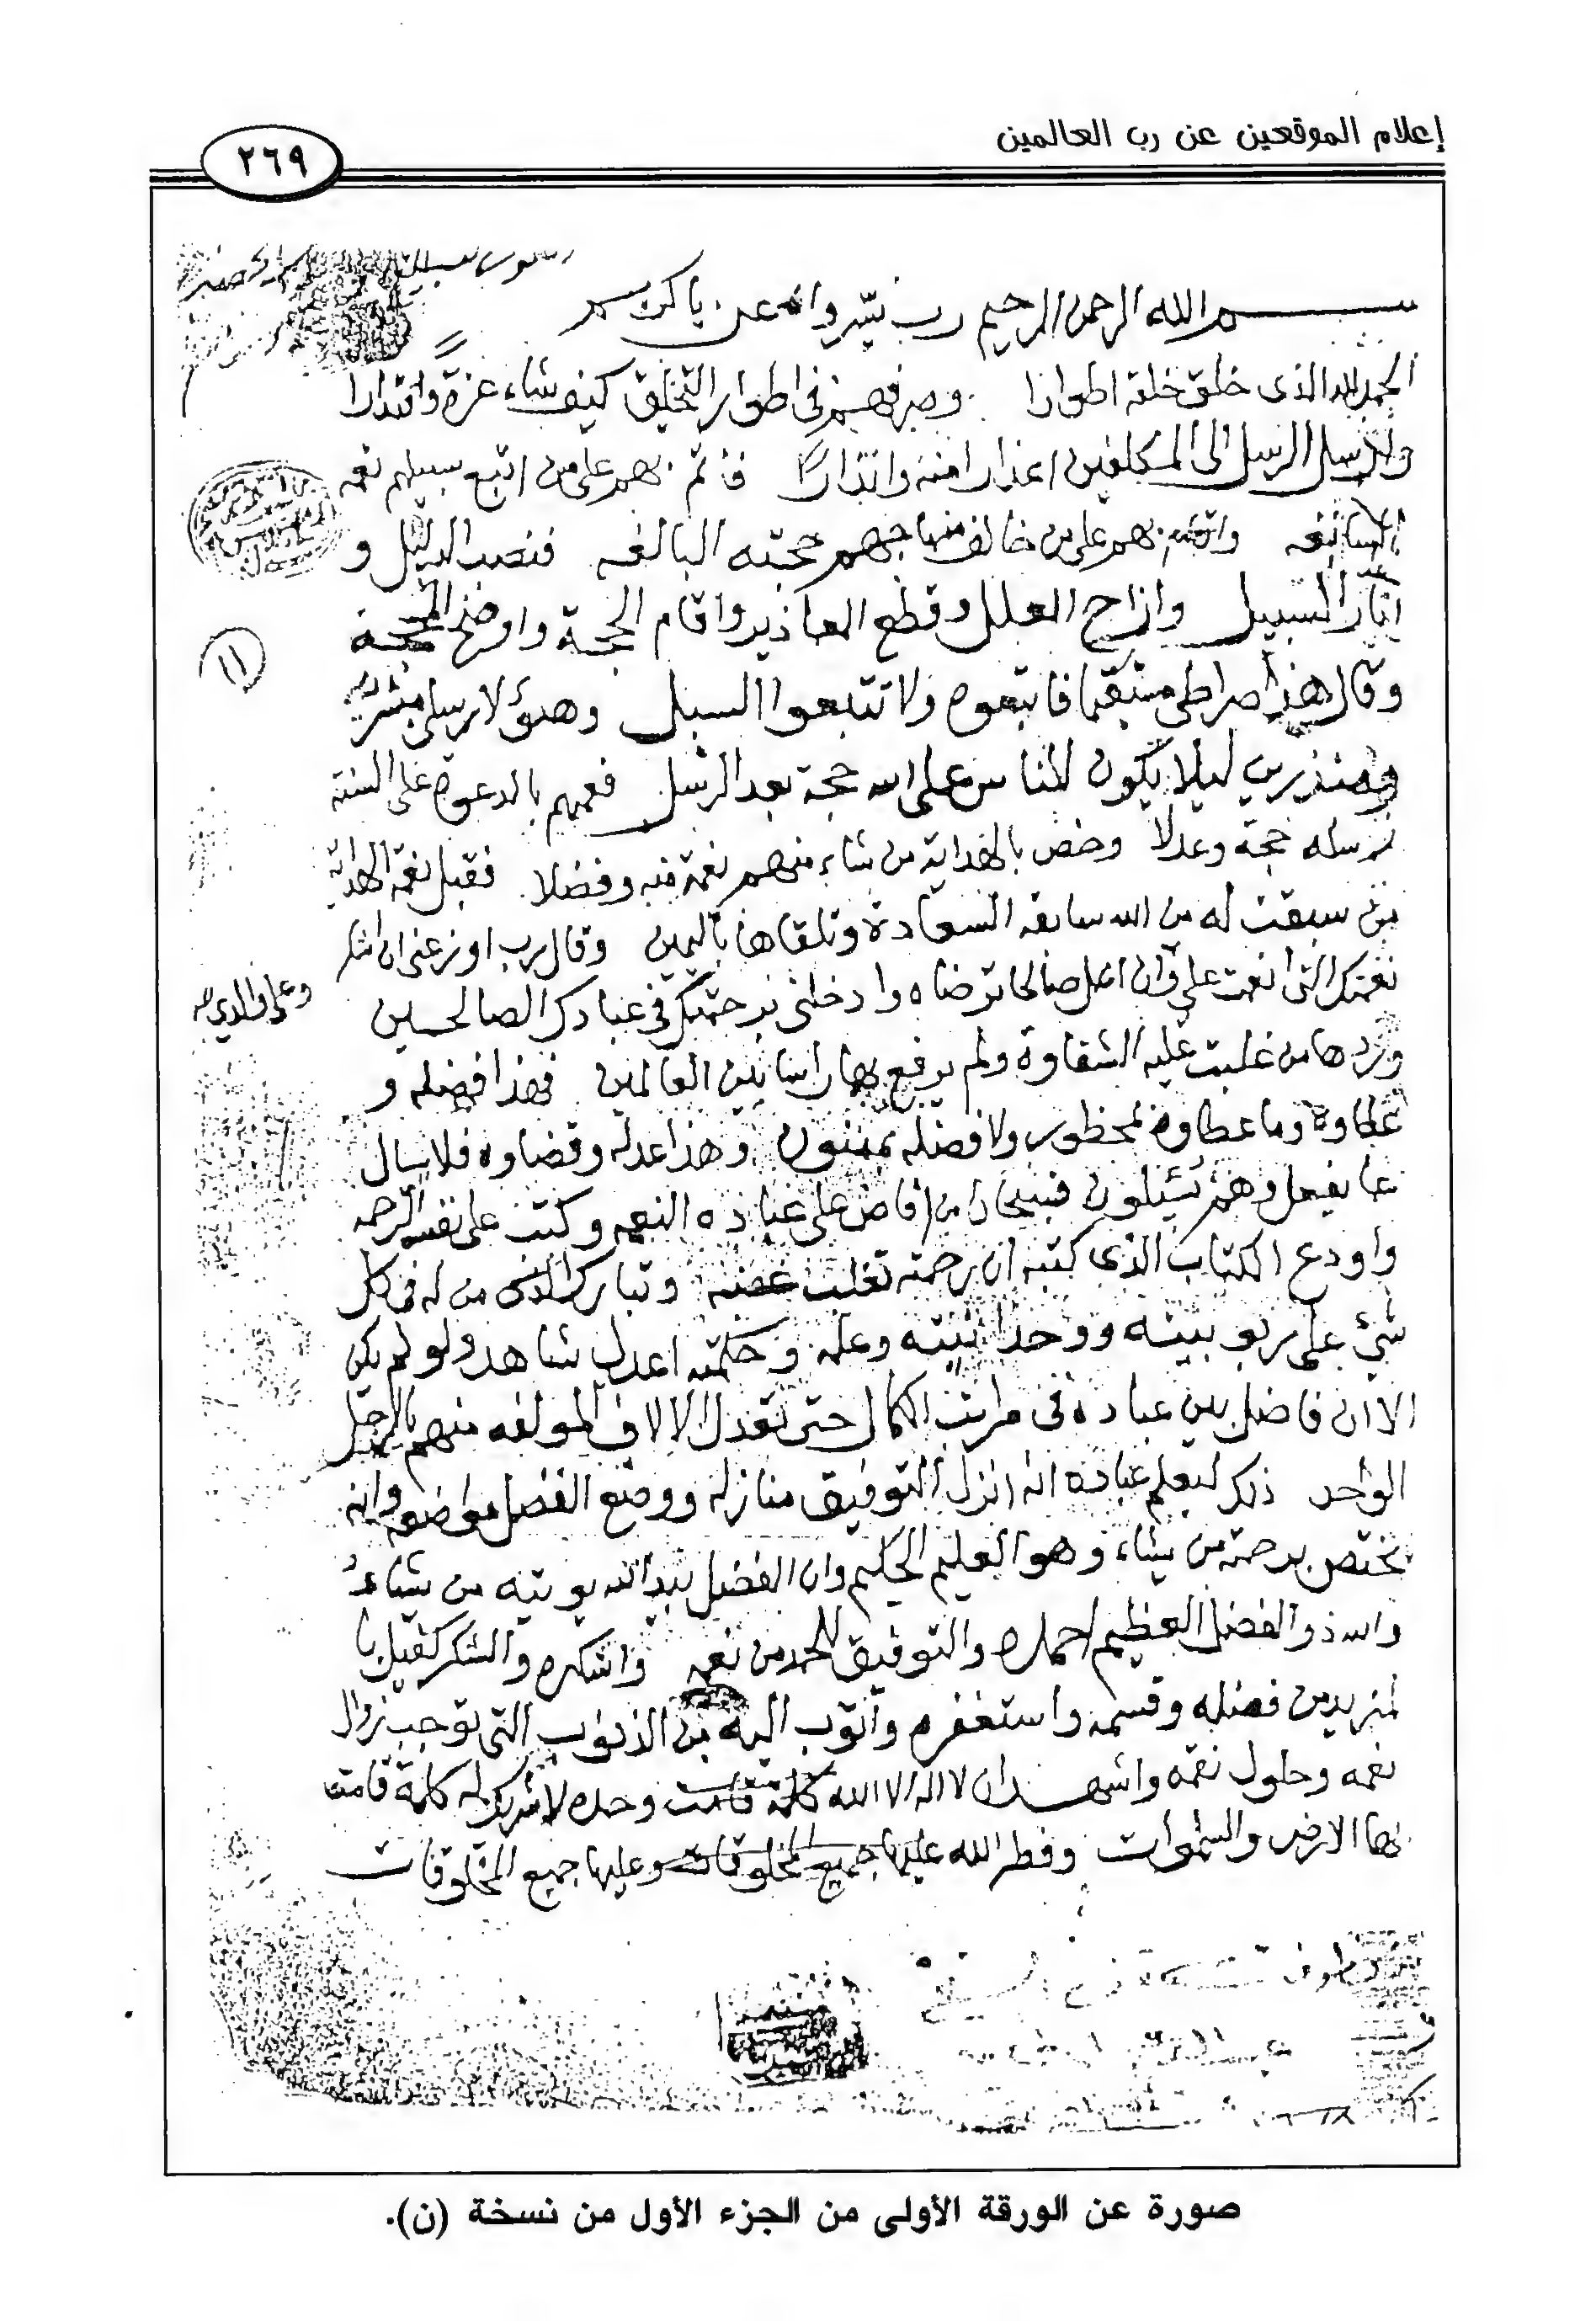 إعلام الموقعين عن رب العالمين
٢٦٩
بسم الله الرحمن الرحيم رب يسر واعن يا كريم
الحمد لله الذى خلق خلقه اطوارا وصرفهم فى اطوار التخليق كيف شاء عزة واقتدارا
وارسل الرسل الى المكلفين اعذارا منه وانذارًا فأتم بهم على من اتبع سبيلهم نعمه
السابغه واقام بهم على من خالف مناهجهم حجته البالغه فنصب الدليل و
انار السبيل وازاح العلل وقطع المعاذير واقام الحجة واوضح المحجة
وقال هذا صراطى مستقيما فاتبعوه ولا تتبعوا السبل وهؤلا رسلى مبشرين
ومنذرين ليلا يكون للناس على الله حجة بعد الرسل فعمهم بالدعوة على السنة
رسله حجة وعدلا وخص بالهداية من شاء منهم نعمة منه وفضلا فقبل نعمة الهداية
من سبقت له من الله سابقه السعادة وتلقاها باليمين وقال رب اوزعنى ان اشكر
نعمتك التى انعمت على وان اعمل صالحا ترضاه وادخلنى برحمتك فى عبادك الصالحين
وعلى والدي
وردها من غلبت عليه الشقاوة ولم يرفع بها راسا بين العالمين فهذا فضله و
عطاوه وما عطاوه بمحظور ولا فضله بممنون وهذا عدله وقضاوه فلا يسال
عما يفعل وهم يسئلون فسبحان من افاض على عباده النعمه وكتب على نفسه الرحمه
واودع الكتاب الذى كتبه ان رحمته تغلب غضبه وتبارك الذى من له فى كل
شئ على ربوبيته ووحدانيته وعلمه وحكمته اعدل شاهد ولو لم يكن
الا ان فاضل بين عباده فى مراتب الكمال حتى تعدل الالاف المولفه منهم بالرجل
الواحد ذلك ليعلم عباده انه انزل التوفيق منازله ووضع الفضل مواضعه وانه
يختص برحمته من يشاء وهو العليم الحكيم وان الفضل بيد الله يوتيه من يشاء
والله ذو الفضل العظيم احمده والتوفيق للحمد من نعمه واشكره والشكر كفيل با
لمزيد من فضله وقسمه واستغفره واتوب اليه من الذنوب التى توجب زوال
نعمه وحلول نقمه واشهد ان لا اله الا الله كلمة قامت وحده لا شريك له كلمة قامت
بها الارض والسموات وفطر الله عليها جميع المخلوقات وعليها جميع المخلوقات
١١
صورة عن الورقة الأولى من الجزء الأول من نسخة (ن).